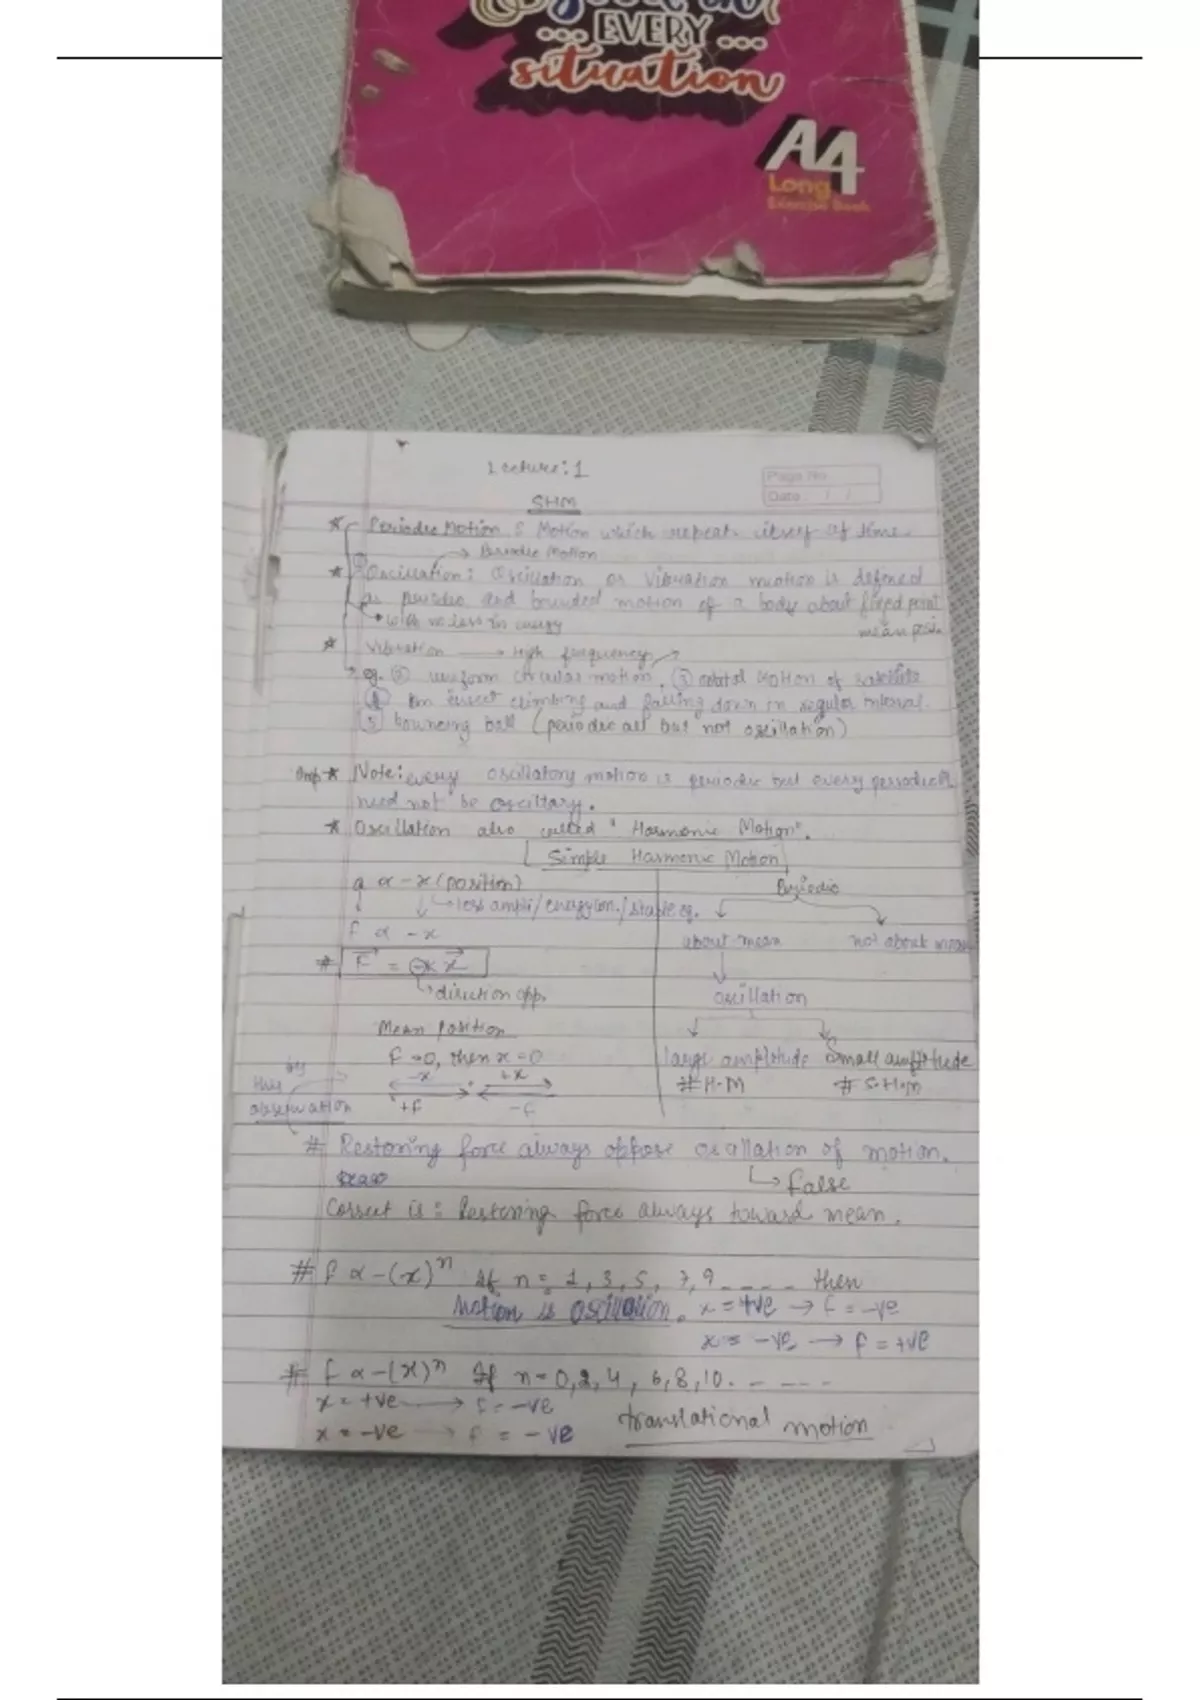 ... EVERY ...
situation
A4
Long
Exercise Book
Lecture: 1
Page No
Date / /
SHM
Periodic Motion : Motion which repeat itself of time.
→ Periodic Motion
Oscillation : Oscillation or Vibration motion is defined
as periodic and bounded motion of a body about fixed point
• with no loss in energy
mean posi.
Vibration → High frequency
eg. ② uniform circular motion, ③ orbital motion of satellite
④ insect climbing and falling down in regular interval.
⑤ bouncing ball (periodic all but not oscillation)
Imp ★ Note: every oscillatory motion is periodic but every periodic
need not be oscilltary.
★ Oscillation also called "Harmonic Motion".
Simple Harmonic Motion
a α - x (position)
Periodic
↳ less ampli/energy con./stable eq.
f α - x
about mean
not about mean
# F = - K x
↳ direction opp.
oscillation
Mean Position
F = 0, then x = 0
large amplitude
Small amplitude
-x +x
# H.M
# S.H.M
by
this
observation
+F -F
# Restoring force always oppose oscillation of motion.
↳ false
Correct is : Restoring force always toward mean.
# f α -(x)ⁿ If n = 1, 3, 5, 7, 9 - - - - then
Motion is oscillation. x = +ve → f = -ve
x = -ve → f = +ve
# f α -(x)ⁿ If n = 0, 2, 4, 6, 8, 10. - - - -
x = +ve → f = -ve
translational motion
x = -ve → f = -ve